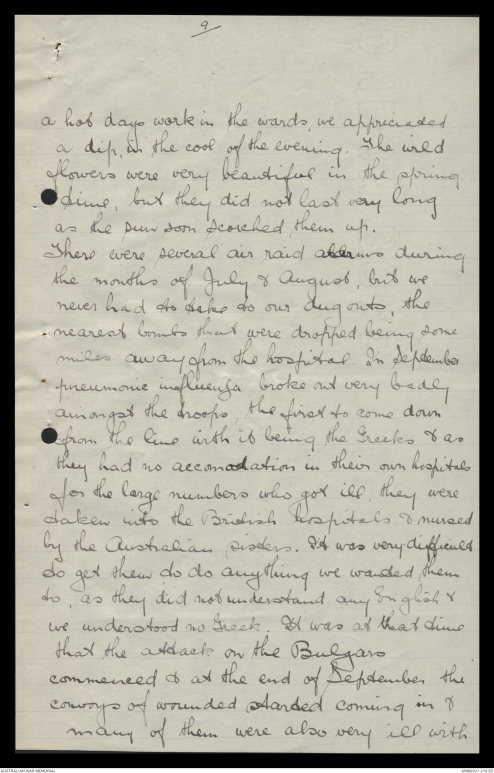 9
a hot days work in the wards, we appreciated
a dip, in the cool of the evening. The wild
flowers were very beautiful in the spring
time, but they did not last very long
as the sun soon scorched them up.
There were several air raid alarms during
the months of July & August, but we
never had to take to our dug outs, the
nearest bombs that were dropped being some
miles away from the hospital. In September
pneumonic influenza broke out very badly
amongst the troops, the first to come down
from the line with it being the Greeks & as
they had no accomodation in their own hospitals
for the large numbers who got ill, they were
taken into the British hospitals & nursed
by the Australian sisters. It was very difficult
to get them to do anything we wanted them
to, as they did not understand any English &
we understood no Greek. It was at that time
that the attack on the Bulgars
commenced & at the end of September the
convoys of wounded started coming in &
many of them were also very ill with
AUSTRALIAN WAR MEMORIAL